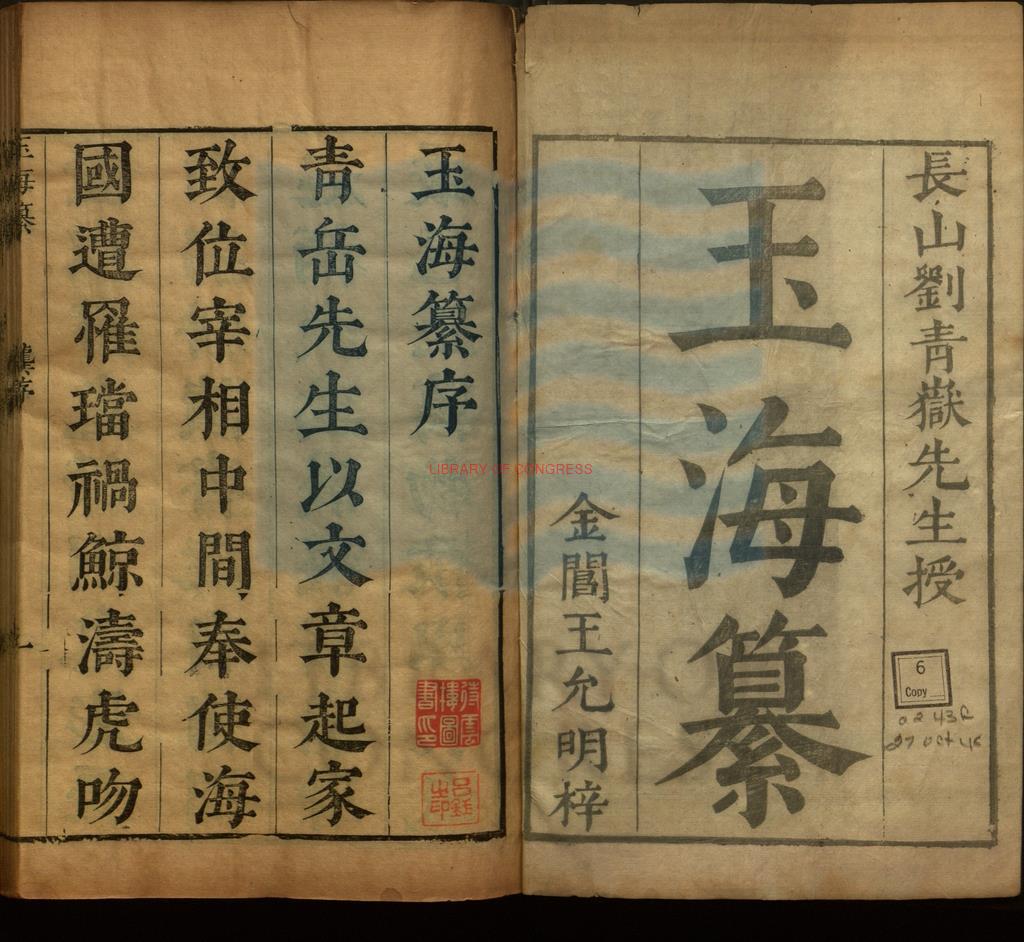 長山劉青嶽先生授
玉海纂
金閶王允明梓
6
Copy
27 Oct
LIBRARY OF CONGRESS
玉海纂序
青岳先生以文章起家
致位宰相中間奉使海
國遭罹璫禍鯨濤虎吻
玉海纂